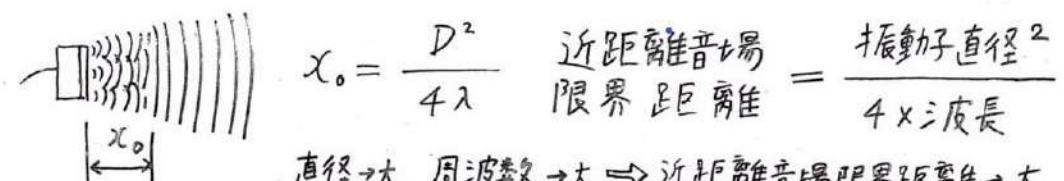 x₀ = D² / 4λ 近距離音場限界距離 = 振動子直径² / 4×波長
x₀
直径→大 周波数→大 ⇒ 近距離音場限界距離→大